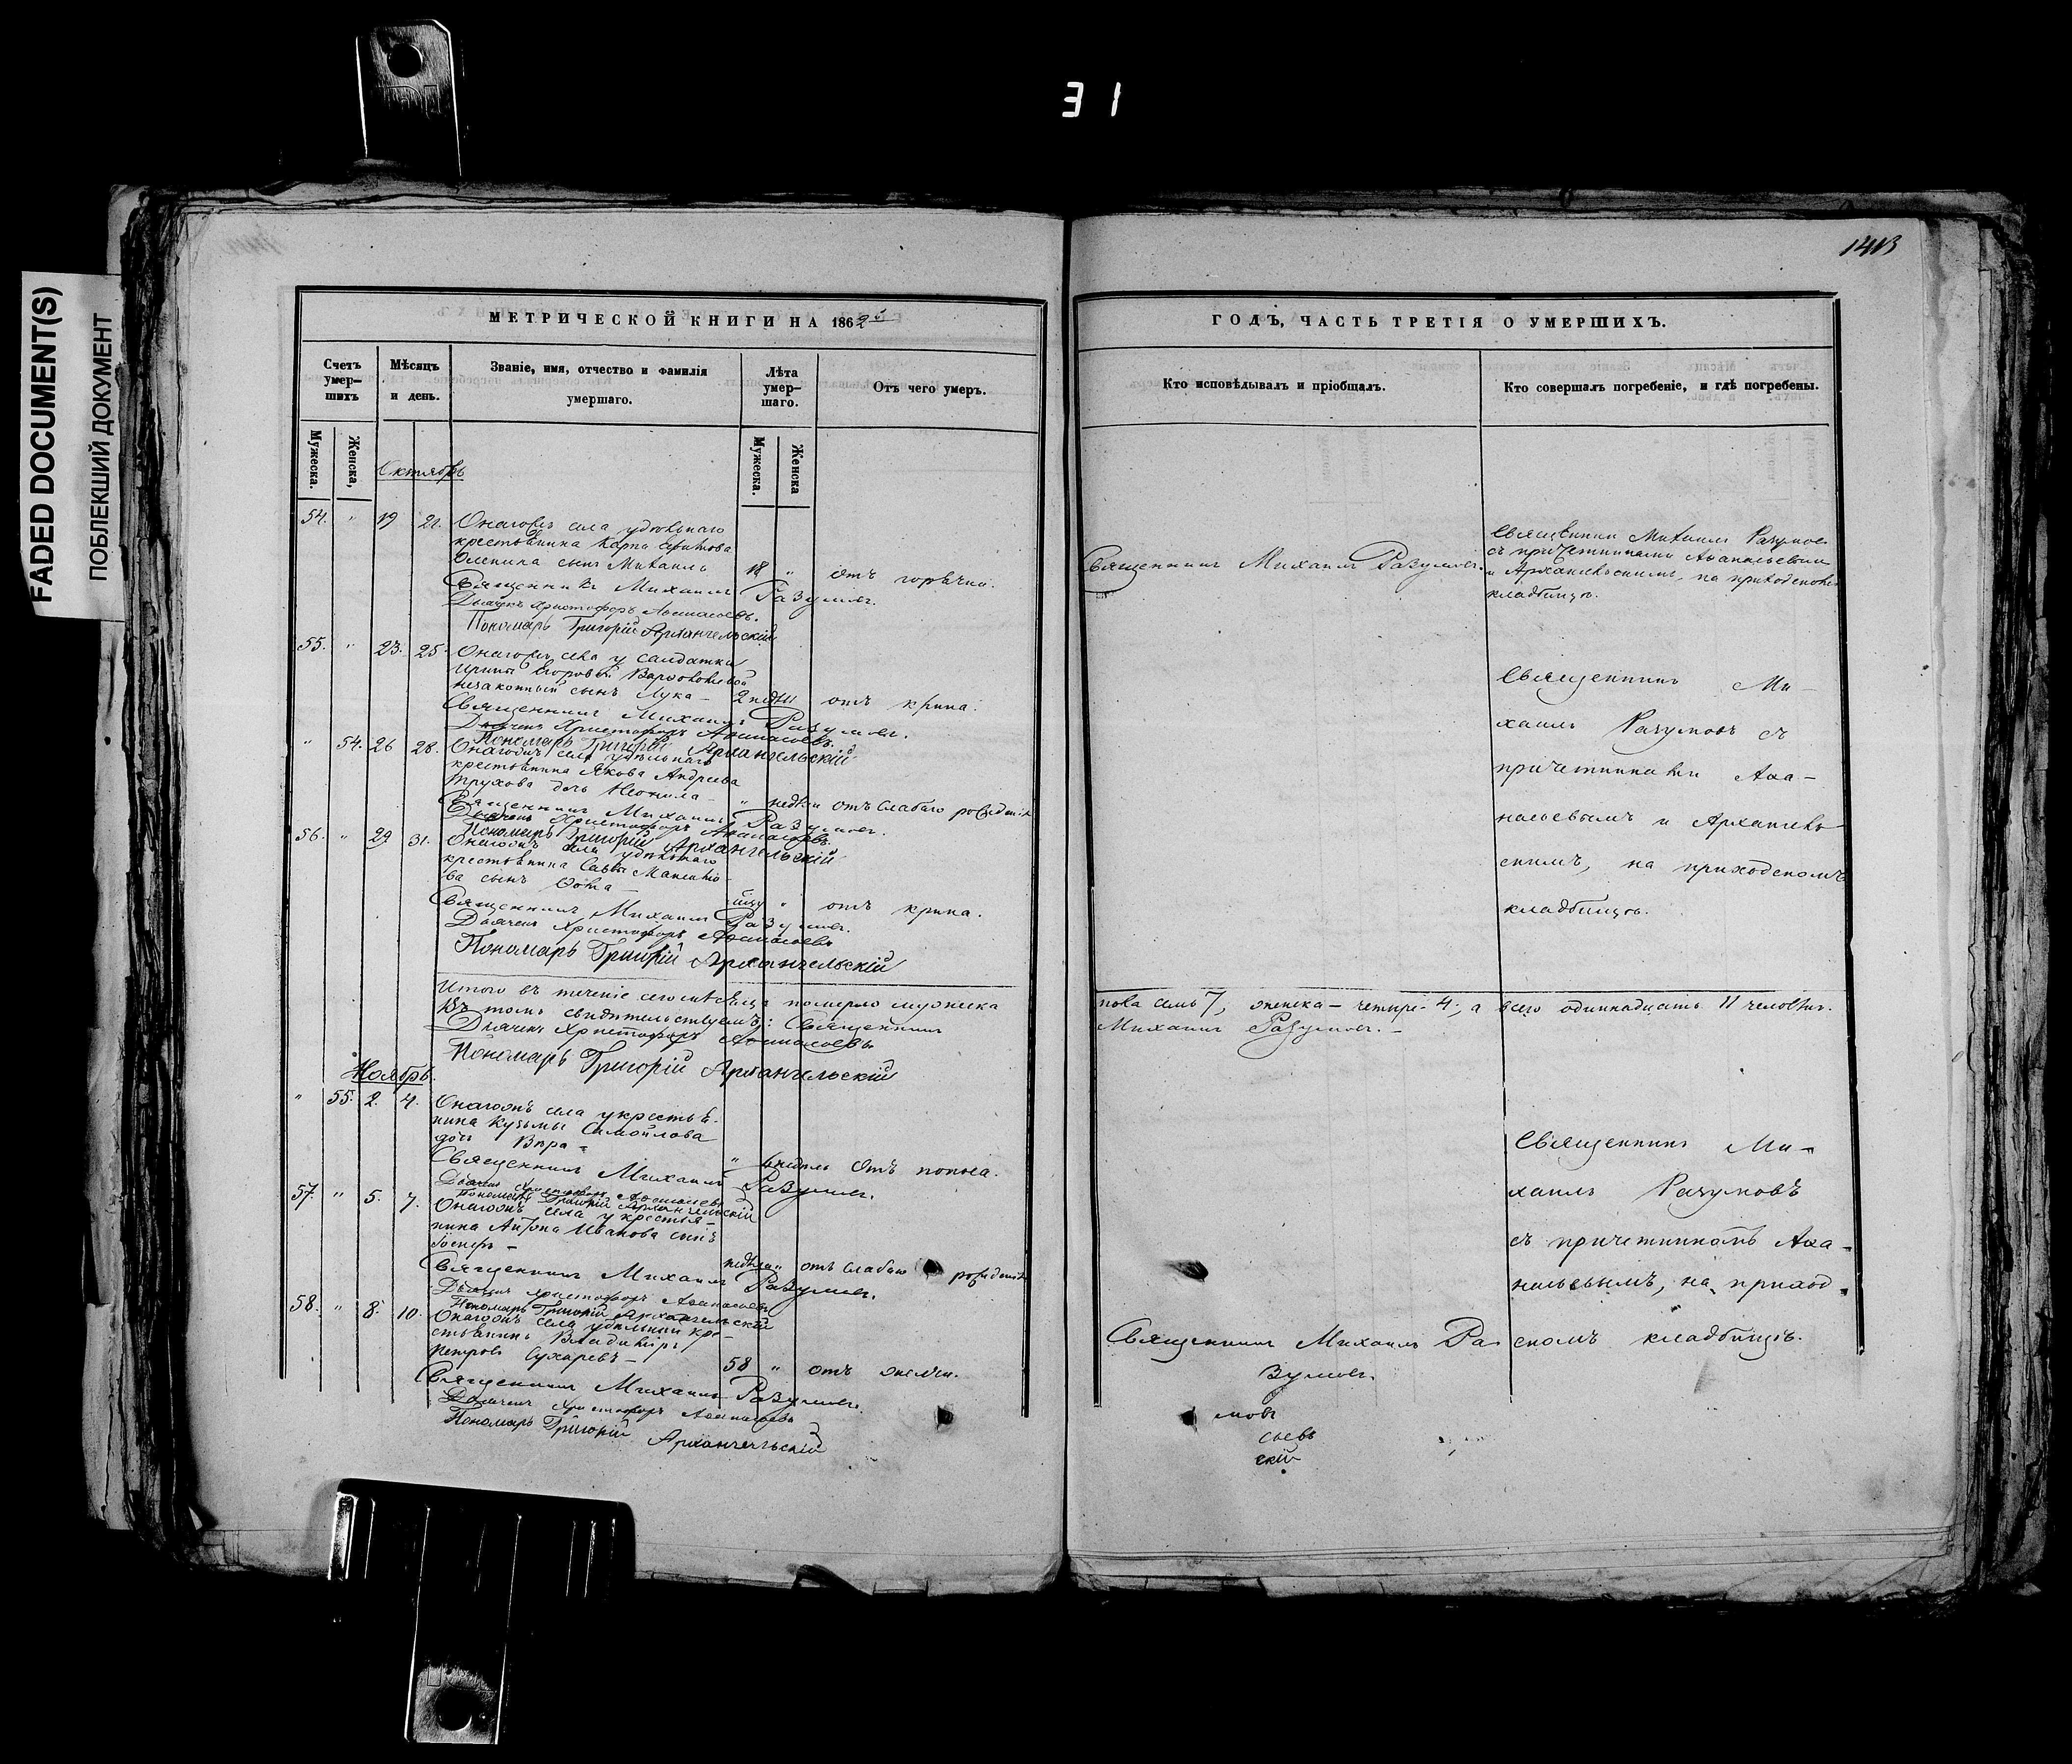 31
FADED DOCUMENT(S)
ПОБЛЕКШИЙ ДОКУМЕНТ
МЕТРИЧЕСКОЙ КНИГИ НА 1862
Счетъ умер-
шихъ
Мѣсяцъ
и день.
Званіе, имя, отчество и фамилія
умершаго.
Лѣта
умер-
шаго.
Отъ чего умеръ.
Мужеска.
Женска,
Мужеска.
Женска
Октябрь
54. " 19 21. села удѣльнаго
крестьянина Карпа
сынъ Михаилъ 18 " отъ горячки.
Священникъ Михаилъ Разумовъ.
Дьячекъ Христофоръ Аѳанасьевъ.
Пономарь Григорій Архангельскій
55. " 23. 25. села у солдатки
Ирины Егоровой
незаконный сынъ Лука – 2 недѣли отъ крика.
Священникъ Михаилъ Разумовъ.
Дьячекъ Христофоръ Аѳанасьевъ.
Пономарь Григорій Архангельскій
" 54. 26 28. села удѣльнаго
крестьянина Якова Андреева
Трухова дочь Неонила – " недѣли отъ слабаго рожденія
Священникъ Михаилъ Разумовъ.
Дьячекъ Христофоръ Аѳанасьевъ
Пономарь Григорій Архангельскій
56. " 29 31. села удѣльнаго
крестьянина Саввы
ва сынъ Ѳома – " отъ крика.
Священникъ Михаилъ Разумовъ.
Дьячекъ Христофоръ Аѳанасьевъ
Пономарь Григорій Архангельскій
Итого въ теченіе сего мѣсяца померло мужеска
Въ томъ свидѣтельствуемъ: Священникъ
Дьячекъ Христофоръ Аѳанасьевъ
Пономарь Григорій Архангельскій
Ноябрь.
" 55. 2. 4. села у крестья-
нина Кузьмы Самойлова
дочь Вѣра – " отъ поноса.
Священникъ Михаилъ Разумовъ.
Дьячекъ Христофоръ Аѳанасьевъ
Пономарь Григорій Архангельскій
57. " 5. 7. села у крестья-
нина Антона Иванова сынъ
недѣли " отъ слабаго рожденія
Священникъ Михаилъ Разумовъ.
Дьячекъ Христофоръ Аѳанасьевъ
Пономарь Григорій Архангельскій
58. " 8. 10. села удѣльный кре-
стьянинъ Владиміръ
Петровъ Сухаревъ – 58 " отъ
Священникъ Михаилъ Разумовъ.
Дьячекъ Христофоръ Аѳанасьевъ
Пономарь Григорій Архангельскій
ГОДЪ, ЧАСТЬ ТРЕТІЯ О УМЕРШИХЪ.
Кто исповѣдывалъ и пріобщалъ.
Кто совершалъ погребеніе, и гдѣ погребены.
Священникъ Михаилъ Разумовъ.
Священникъ Михаилъ Разумовъ
съ причетниками Аѳанасьевымъ
и Архангельскимъ, на приходскомъ
кладбищѣ.
Священникъ Ми-
хаилъ Разумовъ съ
причетниками Аѳа-
насьевымъ и Архангель-
скимъ, на приходскомъ
кладбищѣ.
пола семь 7, женска – четыре 4, а всего одиннадцать 11 человѣкъ.
Михаилъ Разумовъ. –
Священникъ Ми-
хаилъ Разумовъ
съ причетникомъ Аѳа-
насьевымъ, на приход-
скомъ кладбищѣ.
Священникъ Михаилъ Ра-
зумовъ.
мовъ
сьевъ
скій